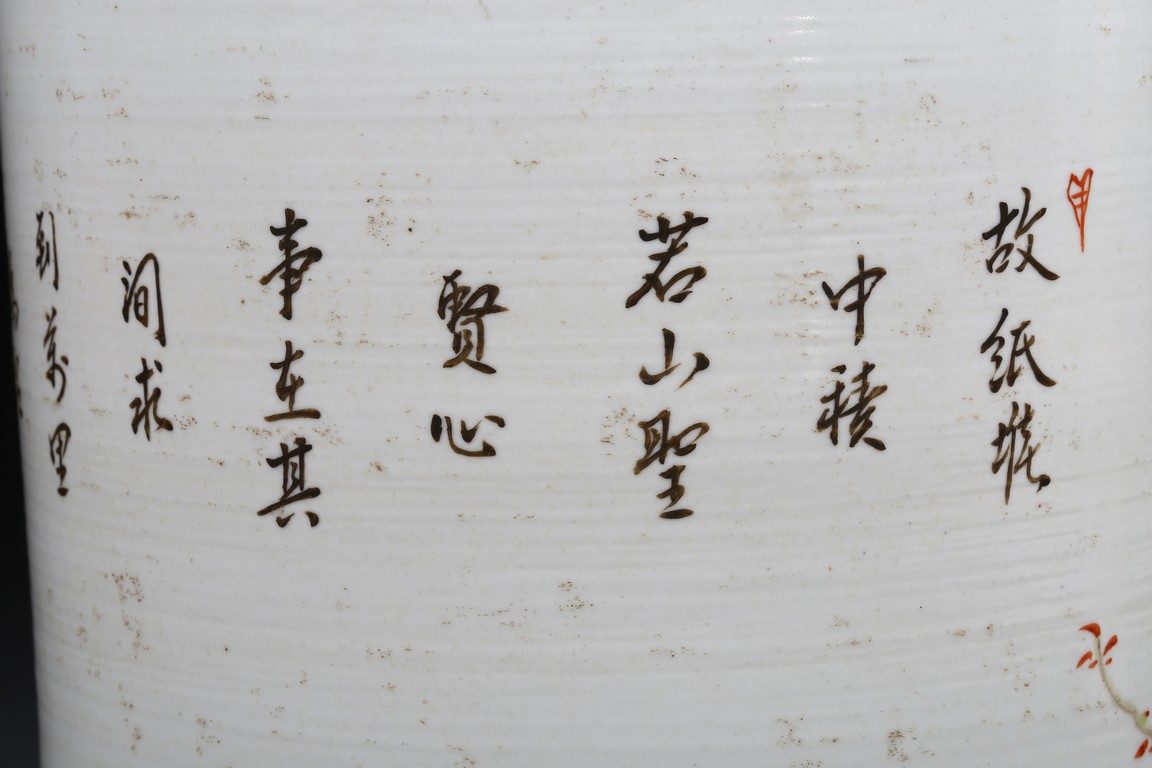 故紙堆
中積
若山聖
賢心
事在其
間求
到萬里